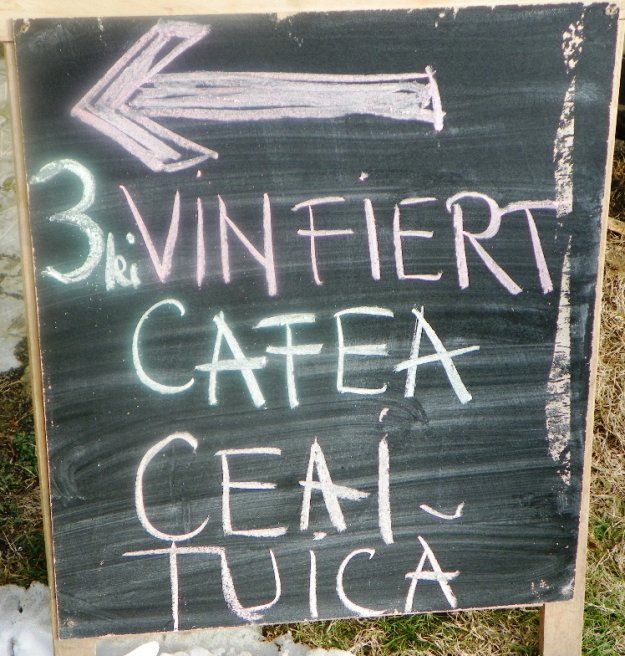 3 lei VIN FIERT
CAFEA
CEAI
TUICĂ